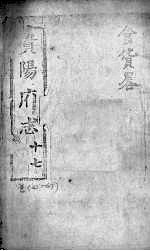 食貨畧
貴陽府志 十七